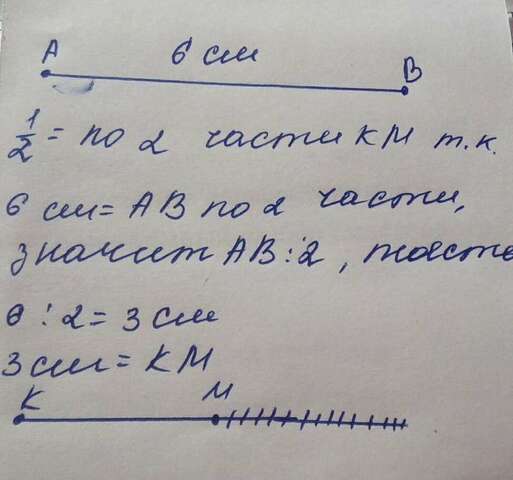 A 6 см B
1/2 = по 2 части КМ т.к.
6 см = АВ по 2 части,
значит АВ : 2, тоесть
6 : 2 = 3 см
3 см = КМ
К М